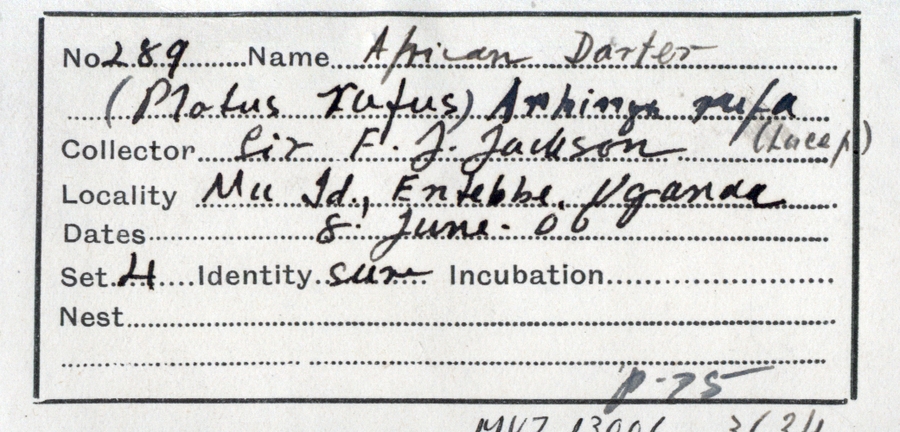 No 289 Name African Darter
(Plotus rufus) Anhinga rufa
(Lacep.)
Collector Sir F. J. Jackson
Locality Mu Id., Entebbe, Uganda
Dates 8. June. 06
Set 4 Identity sure Incubation
Nest
p-75
MVZ